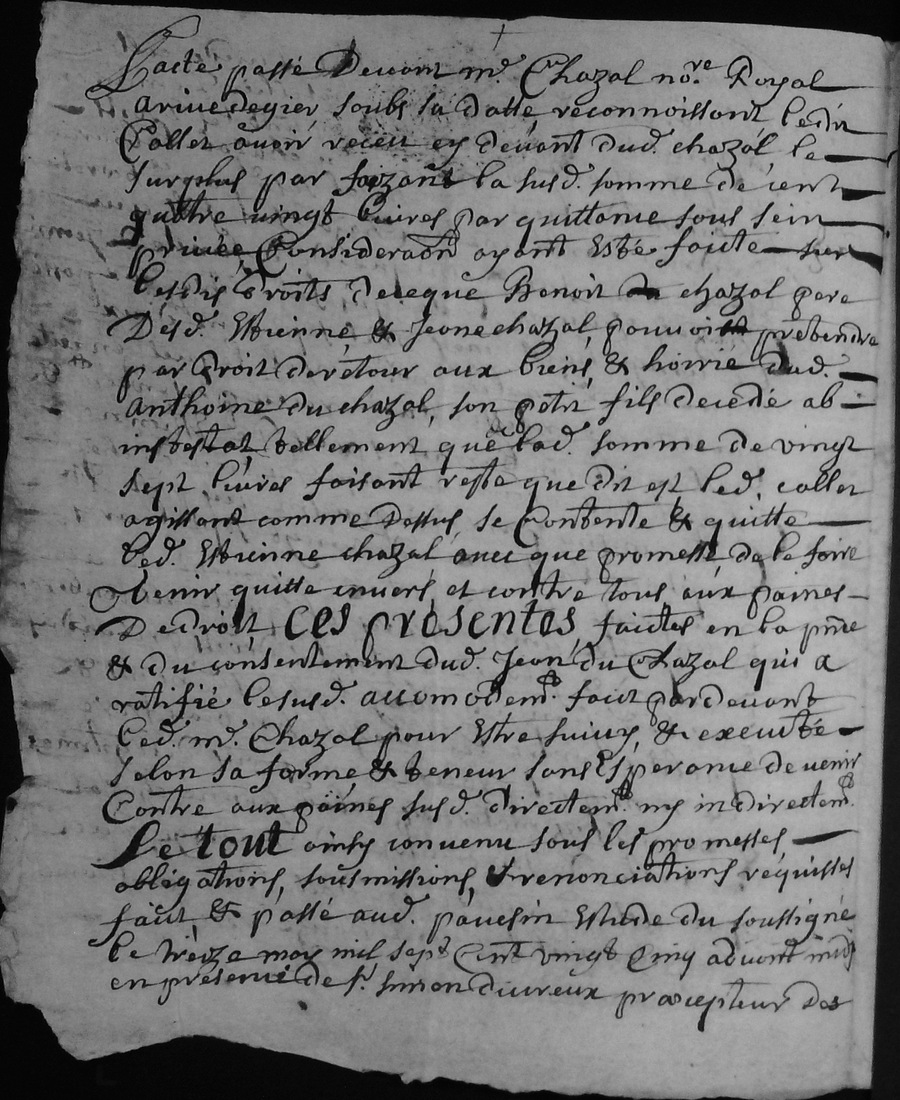 Lacte passé Devant me. Chazal nore. Royal
a rivedegier soubs sa datte, reconnoissant ledit
Collet avoir receu cy devant dud. chazal le
surplus par faizant la susd. somme de cent
quattre vingt livres par quittance sous sein
privée, Consideraon ayant Esté faite sur
lesdis droits de ce que Benoit chazal pere
Desd. Estienne & Jeane chazal pouvoit pretendre
par droit de retour aux biens & hoirie dud.
anthoine du chazal, son petit fils decedé ab
intestat, tellement que lad. somme de vingt
sept livres faisant reste que dit est led. collet
agissant comme Dessus se Contente & quitte
led. Estienne chazal avec que promesse de le faire
tenir quitte envers et contre tous aux paines
De droit, Ces presentes faittes en la pnce
& du consentement dud. Jean du Chazal qui a
ratifié le susd. accomodemt. fait par devant
led. me. Chazal pour Estre suivy & executé
selon sa forme & teneur sans Esperance de venir
Contre aux paines susd. directemt. ny indirectemt.
Le tout ainsy convenu sous les promesses
obligations, sousmissions, & renonciations requises
fait & passé aud. pavesin Estude du soussigné
le treize may mil sept Cent vingt Cinq advant midy
en presence de sr. simon divreux præcepteur des